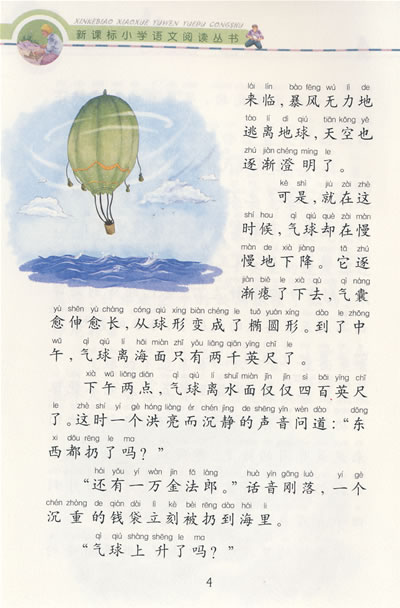 XINKEBIAO XIAOXUE YUWEN YUEDU CONGSHU
新课标小学语文阅读丛书
lái lín bào fēng wú lì de
来临,暴风无力地
táo lí dì qiú tiān kōng yě
逃离地球,天空也
zhú jiàn chéng míng le
逐渐澄明了。
kě shì jiù zài zhè
可是,就在这
shí hou qì qiú què zài màn
时候,气球却在慢
màn de xià jiàng tā zhú
慢地下降。它逐
jiàn biě le xià qù qì náng
渐瘪了下去,气囊
yù shēn yù cháng cóng qiú xíng biàn chéng le tuǒ yuán xíng dào le zhōng
愈伸愈长,从球形变成了椭圆形。到了中
wǔ qì qiú lí hǎi miàn zhǐ yǒu liǎng qiān yīng chǐ le
午,气球离海面只有两千英尺了。
xià wǔ liǎng diǎn qì qiú lí shuǐ miàn jǐn jǐn sì bǎi yīng chǐ
下午两点,气球离水面仅仅四百英尺
le zhè shí yí gè hóng liàng ér chén jìng de shēng yīn wèn dào dōng
了。这时一个洪亮而沉静的声音问道:“东
xi dōu rēng le ma
西都扔了吗?”
hái yǒu yí wàn jīn fǎ láng huà yīn gāng luò yí gè
“还有一万金法郎。”话音刚落,一个
chén zhòng de qián dài lì kè bèi rēng dào hǎi lǐ
沉重的钱袋立刻被扔到海里。
qì qiú shàng shēng le ma
“气球上升了吗?”
4